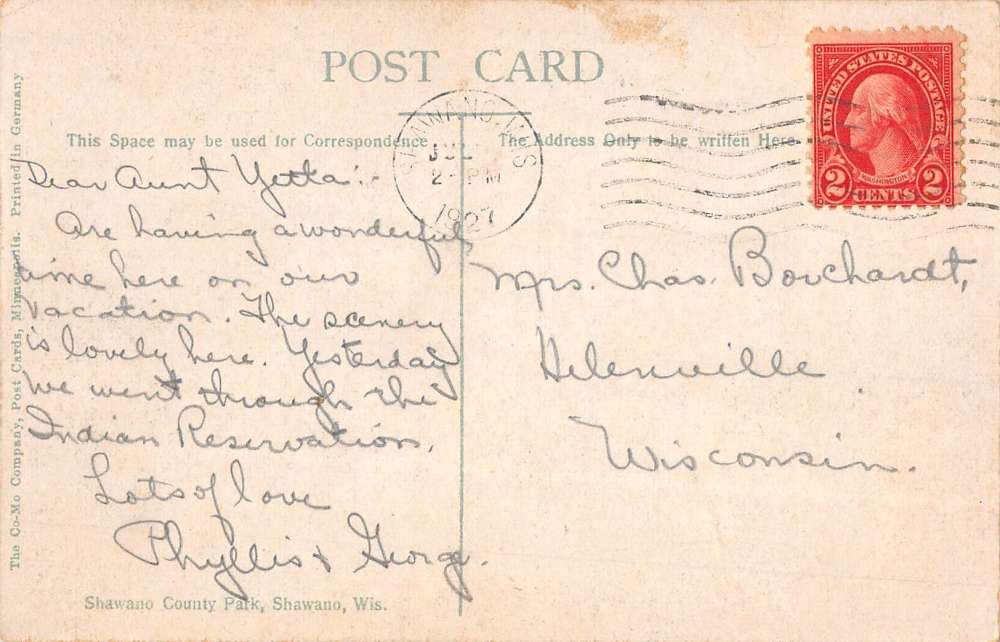 POST CARD
This Space may be used for Correspondence
The Address Only to be written Here
The Co-Mo Company, Post Cards, Minneapolis. Printed in Germany
SHAWANO, WIS
JUL
2 - PM
1927
UNITED STATES POSTAGE
WASHINGTON
2 CENTS 2
Dear Aunt Yetta:-
Are having a wonderful
time here on our
vacation. The scenery
is lovely here. Yesterday
we went through the
Indian Reservation.
Lots of love
Phyllis & George.
Mrs. Chas. Borchardt,
Helenville
Wisconsin.
Shawano County Park, Shawano, Wis.